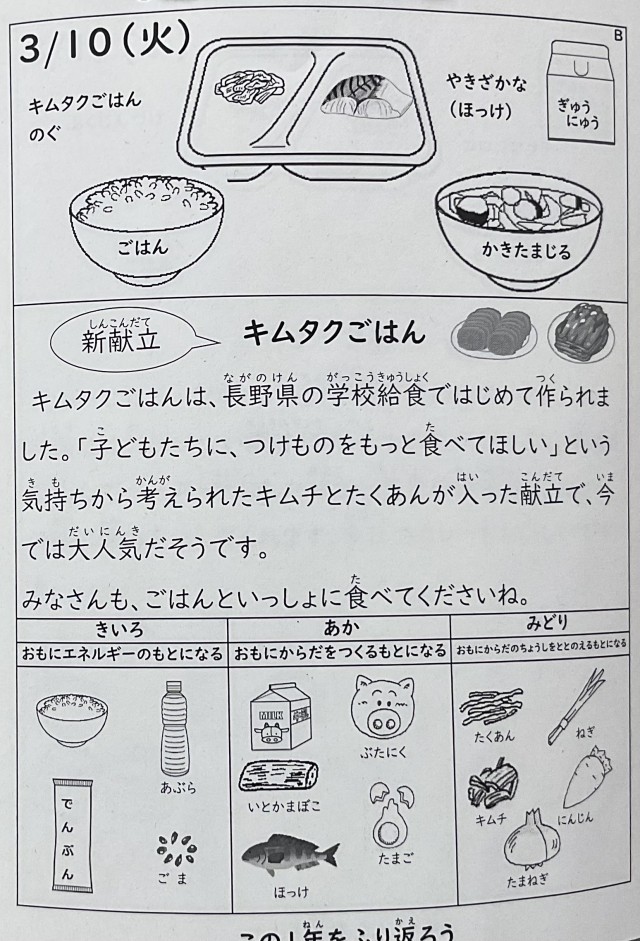 3/10(火)
B
キムタクごはん
のぐ
やきざかな
(ほっけ)
ぎゅう
にゅう
ごはん
かきたまじる
しんこんだて
新献立
キムタクごはん
ながのけん がっこうきゅうしょく つく
キムタクごはんは、長野県の学校給食ではじめて作られま
こ た
した。「子どもたちに、つけものをもっと食べてほしい」という
きも かんが はい こんだて いま
気持ちから考えられたキムチとたくあんが入った献立で、今
だいにんき
では大人気だそうです。
た
みなさんも、ごはんといっしょに食べてくださいね。
きいろ
あか
みどり
おもにエネルギーのもとになる
おもにからだをつくるもとになる
おもにからだのちょうしをととのえるもとになる
あぶら
でんぷん
ごま
MILK
ぶたにく
いとかまぼこ
たまご
ほっけ
たくあん
ねぎ
キムチ
にんじん
たまねぎ
ねん かえ
この1年をふり返ろう